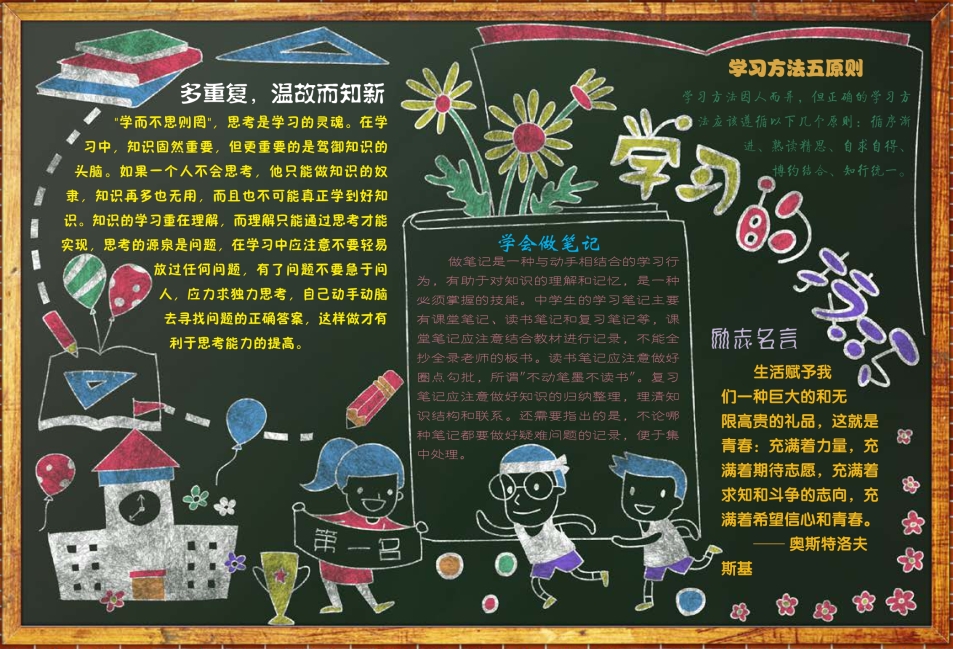 多重复，温故而知新
"学而不思则罔"，思考是学习的灵魂。在学
习中，知识固然重要，但更重要的是驾御知识的
头脑。如果一个人不会思考，他只能做知识的奴
隶，知识再多也无用，而且也不可能真正学到好知
识。知识的学习重在理解，而理解只能通过思考才能
实现，思考的源泉是问题，在学习中应注意不要轻易
放过任何问题，有了问题不要急于问
人，应力求独力思考，自己动手动脑
去寻找问题的正确答案，这样做才有
利于思考能力的提高。
第一名
学会做笔记
做笔记是一种与动手相结合的学习行
为，有助于对知识的理解和记忆，是一种
必须掌握的技能。中学生的学习笔记主要
有课堂笔记、读书笔记和复习笔记等，课
堂笔记应注意结合教材进行记录，不能全
抄全录老师的板书。读书笔记应注意做好
圈点勾批，所谓"不动笔墨不读书"。复习
笔记应注意做好知识的归纳整理，理清知
识结构和联系。还需要指出的是，不论哪
种笔记都要做好疑难问题的记录，便于集
中处理。
学习方法五原则
学习方法因人而异，但正确的学习方
法应该遵循以下几个原则：循序渐
进、熟读精思、自求自得、
博约结合、知行统一。
学习的快乐
励志名言
生活赋予我
们一种巨大的和无
限高贵的礼品，这就是
青春：充满着力量，充
满着期待志愿，充满着
求知和斗争的志向，充
满着希望信心和青春。
—— 奥斯特洛夫
斯基